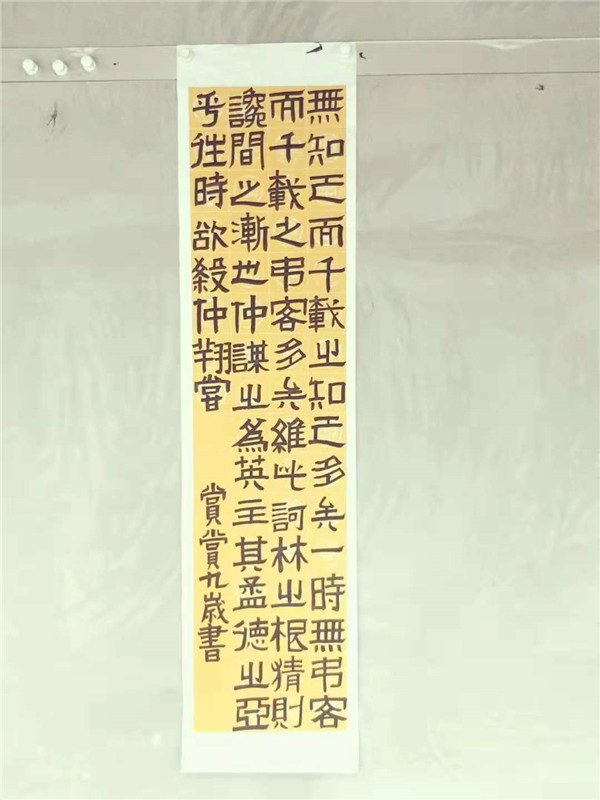 無知己而千載之知己多矣一時無弔客
而千載之弔客多矣維此訶林之根猜則
讒間之漸也仲謀之爲英主其孟德之亞
乎往時欲殺仲翔嘗
賞賞九歲書